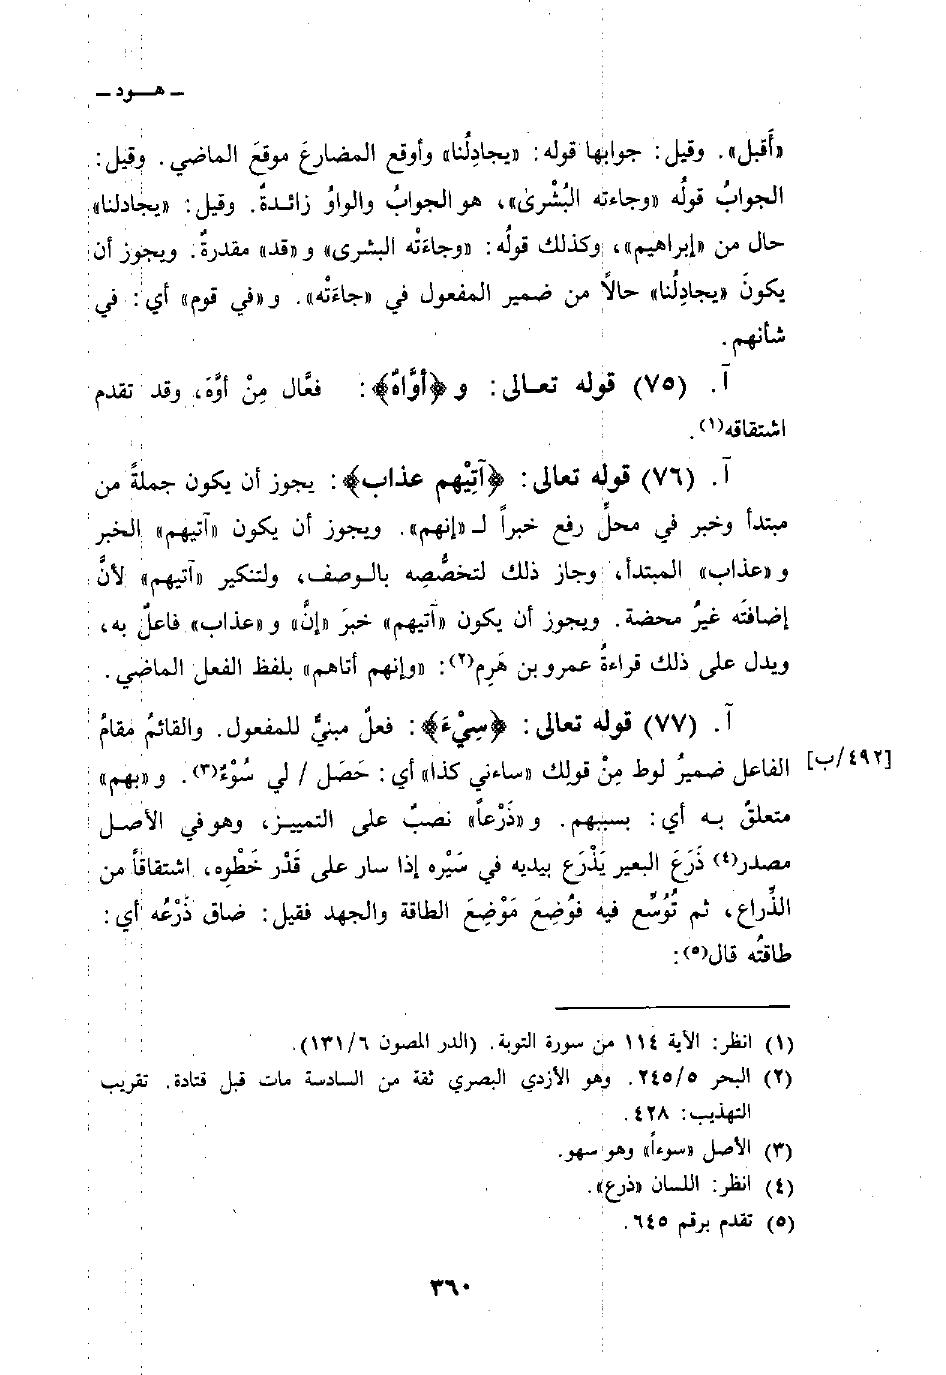 ـ هـــود ـ
«أَقبل». وقيل: جوابها قوله: «يجادِلُنا» وأوقع المضارعَ موقعَ الماضي. وقيل:
الجوابُ قولُه «وجاءته البُشْرىٰ»، هو الجوابُ والواوُ زائدةٌ. وقيل: «يجادلنا»
حال من «إبراهيم»، وكذلك قولُه: «وجاءَتْه البشرى» و«قد» مقدرةٌ. ويجوز أن
يكونَ «يجادِلُنا» حالاً من ضمير المفعول في «جاءَتْه». و«في قوم» أي: في
شأنهم.
آ. (٧٥) قوله تعالى: و﴿أوَّاهٌ﴾: فعَّال مِنْ أوَّهَ، وقد تقدم
اشتقاقه(١).
آ. (٧٦) قوله تعالى: ﴿آتِيْهم عذاب﴾: يجوز أن يكون جملةً من
مبتدأ وخبر في محلِّ رفع خبراً لـ«إنهم». ويجوز أن يكون «آتيهم» الخبر
و«عذاب» المبتدأ، وجاز ذلك لتخصُّصِه بالوصف، ولتنكير «آتيهم» لأنَّ
إضافتَه غيرُ محضة. ويجوز أن يكون «آتيهم» خبرَ «إنَّ» و«عذاب» فاعلٌ به،
ويدل على ذلك قراءةُ عمرو بن هَرِم(٢): «وإنهم أتاهم» بلفظ الفعل الماضي.
آ. (٧٧) قوله تعالى: ﴿سِيْءَ﴾: فعلٌ مبنيٌّ للمفعول. والقائمُ مقامُ
الفاعل ضميرُ لوط مِنْ قولِك «ساءني كذا» أي: حَصَل / لي سُوْءٌ(٣). و«بهم» [٤٩٢/ب]
متعلقٌ به أي: بسببهم. و«ذَرْعاً» نصبٌ على التمييز، وهو في الأصل
مصدر(٤) ذَرَعَ البعير يَذْرَع بيديه في سَيْره إذا سار على قَدْر خَطْوِه، اشتقاقاً من
الذِّراع، ثم تُوُسِّع فيه فوُضِعَ مَوْضِعَ الطاقة والجهد فقيل: ضاق ذَرْعُه أي:
طاقتُه قال(٥):
(١) انظر: الآية ١١٤ من سورة التوبة. (الدر المصون ١٣١/٦).
(٢) البحر ٢٤٥/٥. وهو الأزدي البصري ثقة من السادسة مات قبل قتادة. تقريب
التهذيب: ٤٢٨.
(٣) الأصل «سوءاً» وهو سهو.
(٤) انظر: اللسان «ذرع».
(٥) تقدم برقم ٦٤٥.
٣٦٠